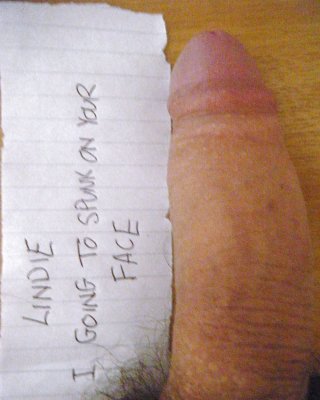 LINDIE
I GOING TO SPUNK ON YOUR
FACE